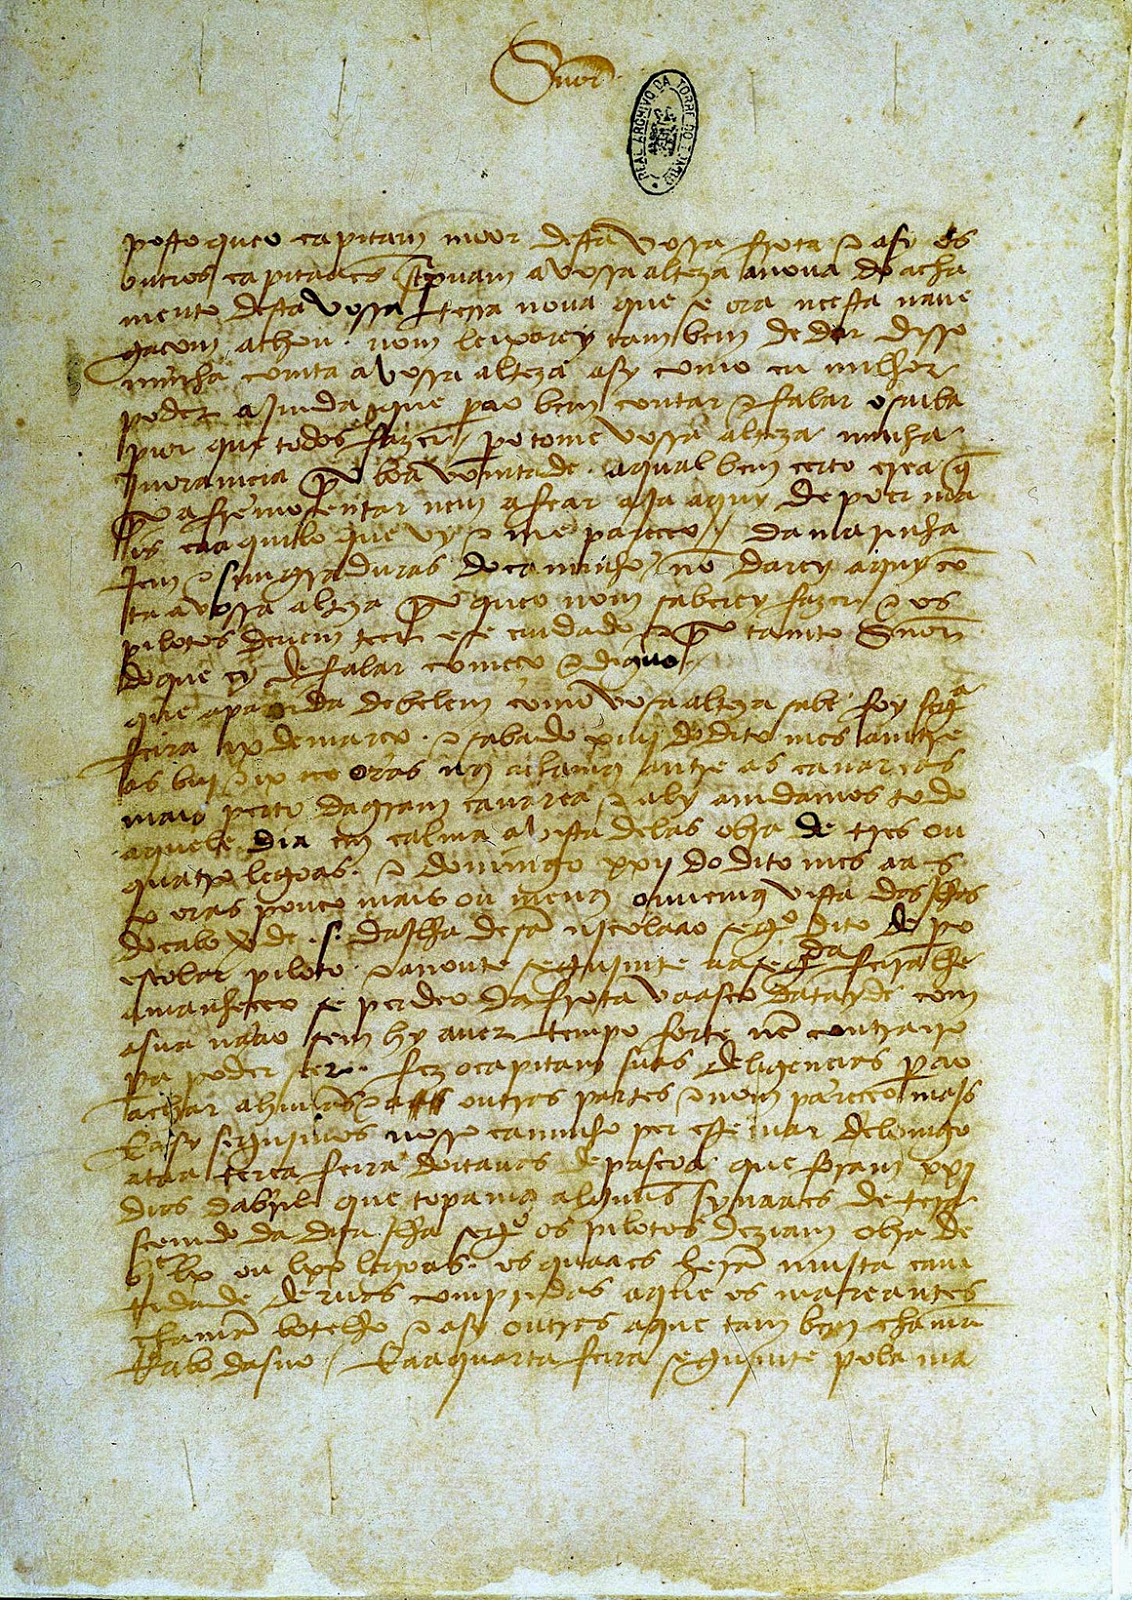 Snõr
REAL ARCHIVO DA TORRE DO TOMBO
posto queo capitam moor desta vossa frota e asy os
outros capitaães screpuam a vossa alteza a noua do acha
mento desta vossa terra noua que se ora neesta naue
gaçom achou. nom leixarey tambem de dar disso
minha comta a vossa alteza asy como eu milhor
poder ajmda que pera o bem contar e falar o saiba
pior que todos fazer / pero tome vossa alteza minha
jnoramçia por boa vomtade. aqual bem certo crea q̃
por afremosentar nem afear aja aquy de poer ma
is caaquilo que vy e me pareceo / da marinha
jem e simgraduras do caminho / nõ darey aquy cõ
ta a vossa alteza por queo nom saberey fazer e os
pilotos deuem teer ese cuidado e por tamto Snõr
do que ey de falar começo e diguo /
que apartida de belem como vosa alteza sabe foy segª
feira ix de março. e sabado xiiij do dito mes amtre
as biij e ix oras nos achamos antre as canareas
mais perto da gram canarea e aly amdamos todo
aquele dia em calma a vista delas obra de tres ou
quatro legoas. e domingo xxij do dito mes aas
x oras pouco mais ou menos ouuemos vista das jlhas
do cabo verde .s. da jlha de sã njcolaao segº dito de pero
escolar piloto. e a noute segujmte aa segda feira lhe
amanheceo se perdeo da frota vaasco datayde com
a sua naao sem hy auer tempo forte nẽ contrairo
pera poder seer. fez o capitam suas deligençias perao
achar a huũas e a outras partes e nom pareceo majs
E asy segujmos nosso caminho per este mar delomgo
ataa terça feira doitauas de pascoa que foram xxj
dias dabril que topamos alguũs synaaes de tera
seemdo da dita jlha segº os pilotos deziam obra de
bjclx ou lxx legoas. os quaaes herã mujta cam
tidade deruas compridas aque os mareantes
chamã botelho e asy outras aque tambem chamã
Rabo dasno / E aa quarta feira segujmte pola ma